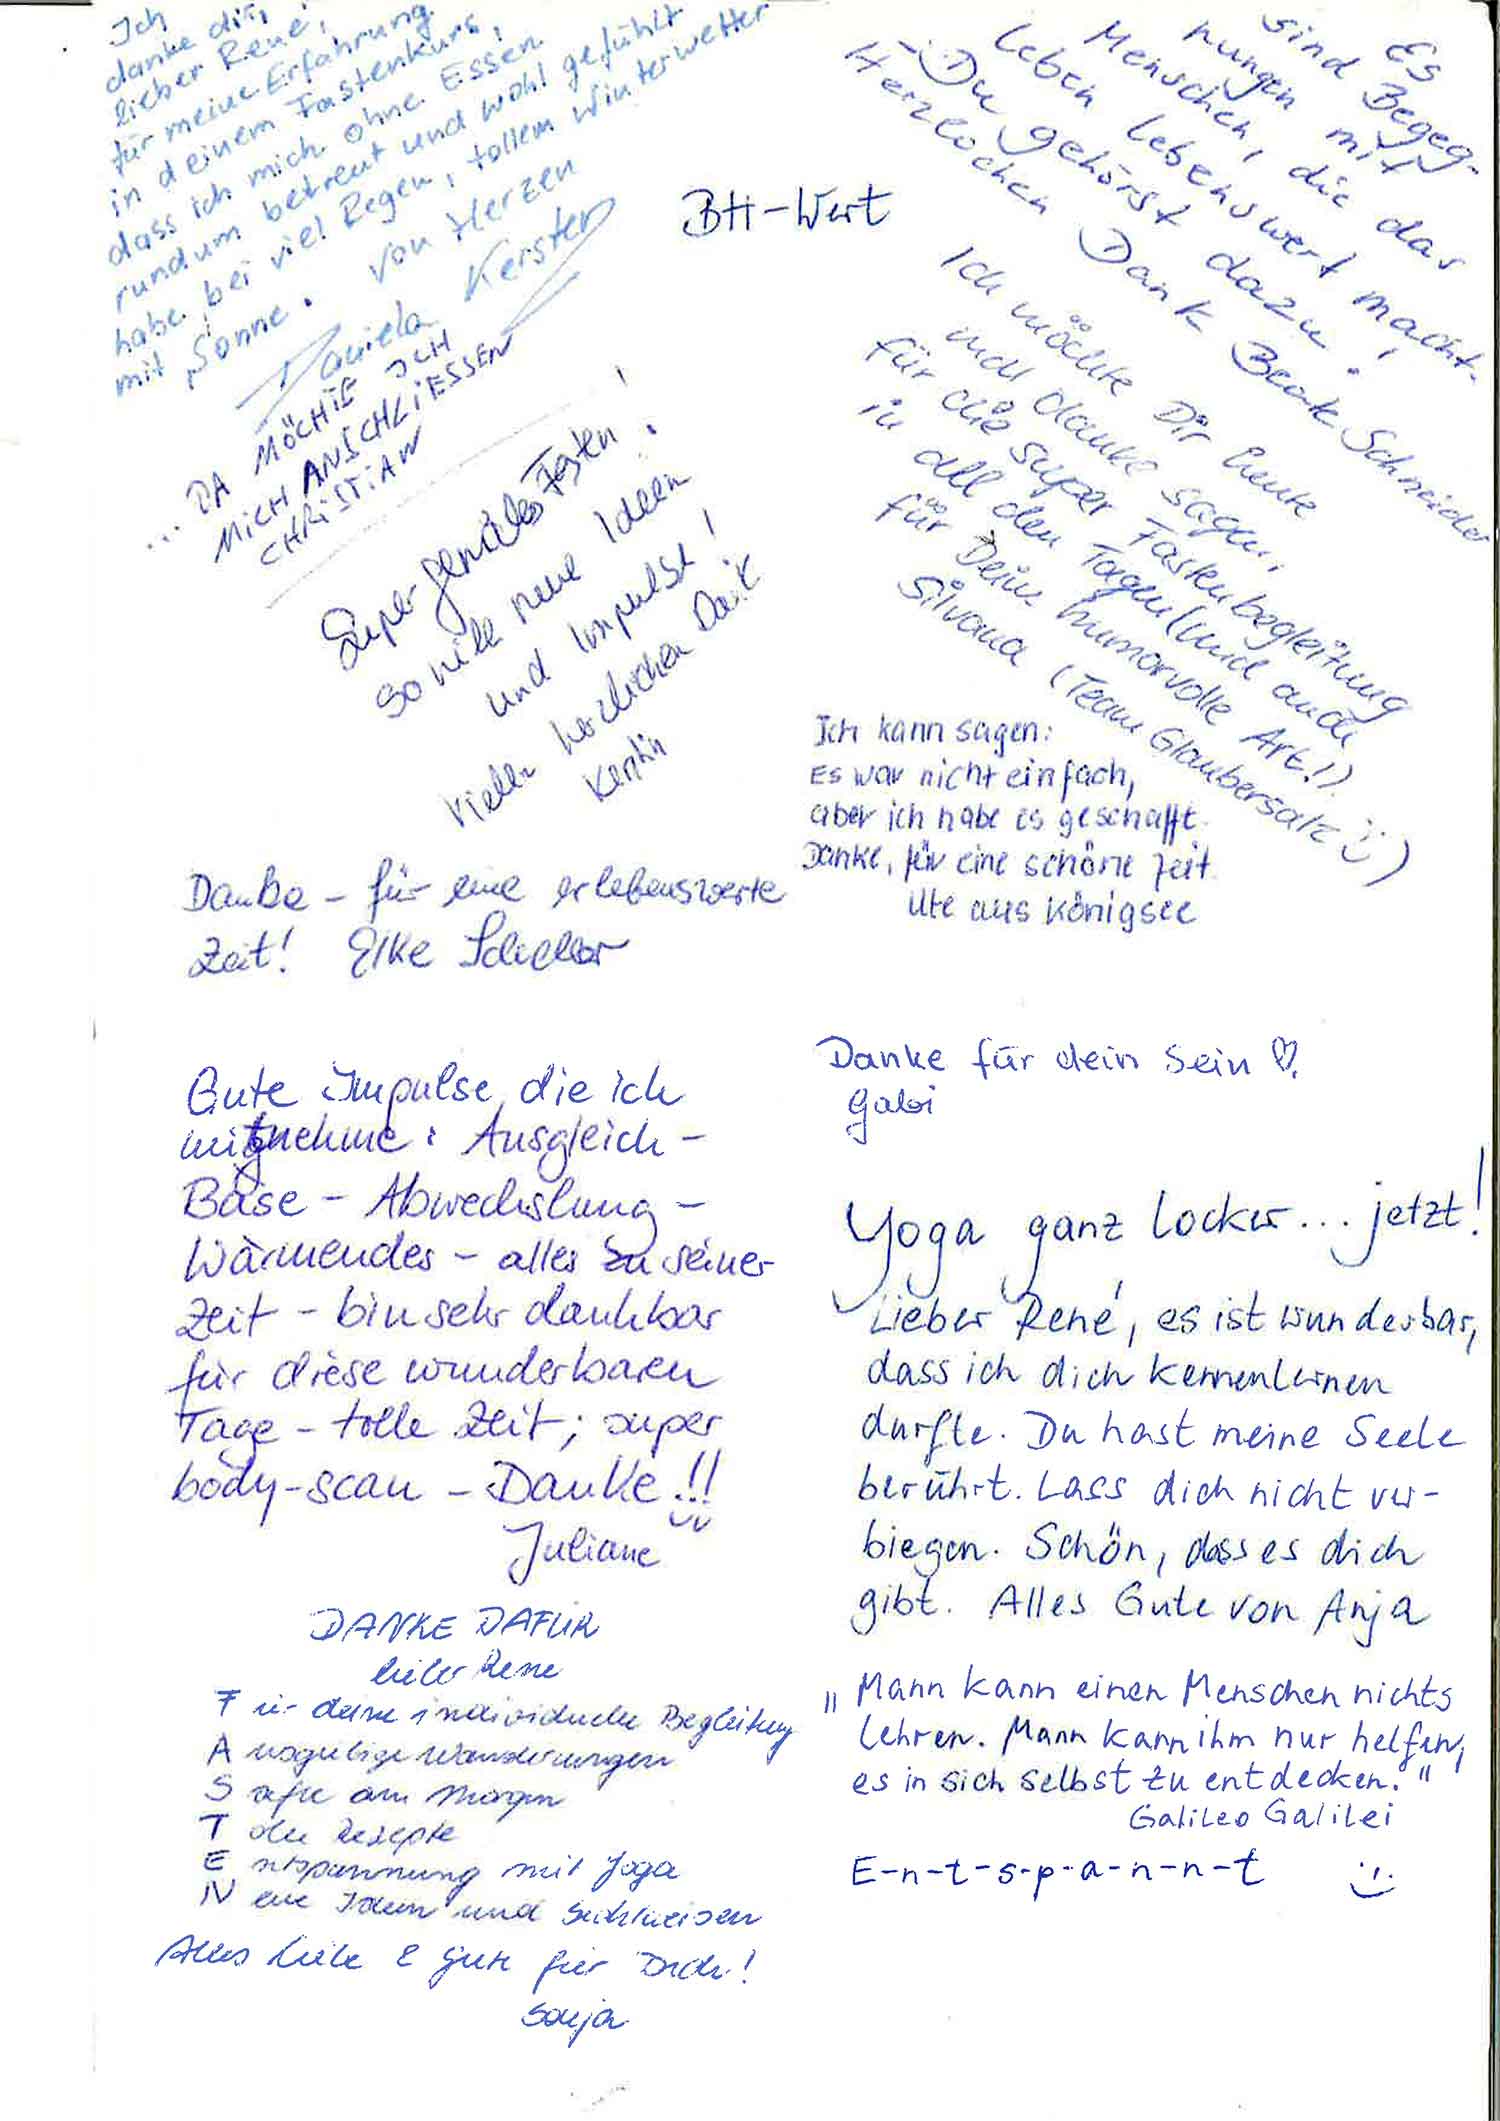 Ich
danke dir,
lieber René,
für meine Erfahrung
in deinem Fastenkurs,
dass ich mich ohne Essen
rundum betreut und wohl gefühlt
habe bei viel Regen, tollem Winterwetter
mit Sonne. Von Herzen
Daniela Kersten
... DA MÖCHTE ICH
MICH ANSCHLIESSEN
CHRISTIAN
BH-Wert
Es
sind Begeg-
nungen mit
Menschen, die das
Leben lebenswert macht.
- Du gehörst dazu!
Herzlichen Dank Beate Schneider
Super geniales Fasten!
so viele neue Ideen
und Impulse!
Vielen herzlichen Dank
Kerstin
Ich möchte Dir heute
mal danke sagen,
für die super Fastenbegleitung
in all den Tagen (und auch
für Deine humorvolle Art!).
Silvana (Team Glaubersalz :))
Ich kann sagen:
Es war nicht einfach,
aber ich habe es geschafft.
Danke, für eine schöne Zeit
Ute aus Königsee
Danke - für eine erlebenswerte
Zeit! Elke
Danke für dein Sein ♡.
Gabi
Gute Impulse, die ich
mitnehme: Ausgleich -
Base - Abwechslung -
Wärmendes - alles zu seiner
Zeit - bin sehr dankbar
für diese wunderbaren
Tage - tolle Zeit; super
body-scan - Danke!!
Juliane
Yoga ganz locker... jetzt!
Lieber René, es ist wunderbar,
dass ich dich kennenlernen
durfte. Du hast meine Seele
berührt. Lass dich nicht ver-
biegen. Schön, dass es dich
gibt. Alles Gute von Anja
DANKE DAFÜR
lieber Rene
Für deine individuelle Begleitung
Ausgiebige Wanderungen
Säfte am Morgen
Tolle Rezepte
Entspannung mit Yoga
Neue Ideen und Sichtweisen
Alles Liebe & Gute für Dich!
Sonja
"Mann kann einen Menschen nichts
lehren. Mann kann ihm nur helfen,
es in sich selbst zu entdecken."
Galileo Galilei
E-n-t-s-p-a-n-n-t :)